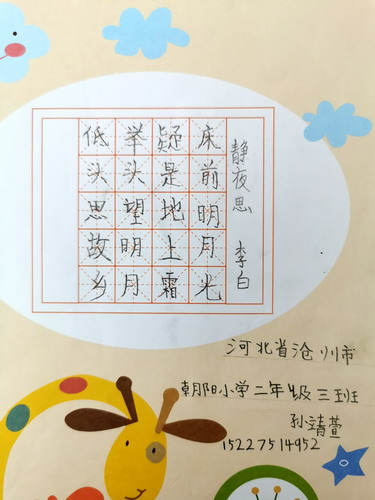 静夜思 李白
床前明月光
疑是地上霜
举头望明月
低头思故乡
河北省沧州市
朝阳小学二年级三班
孙靖萱
15227514952